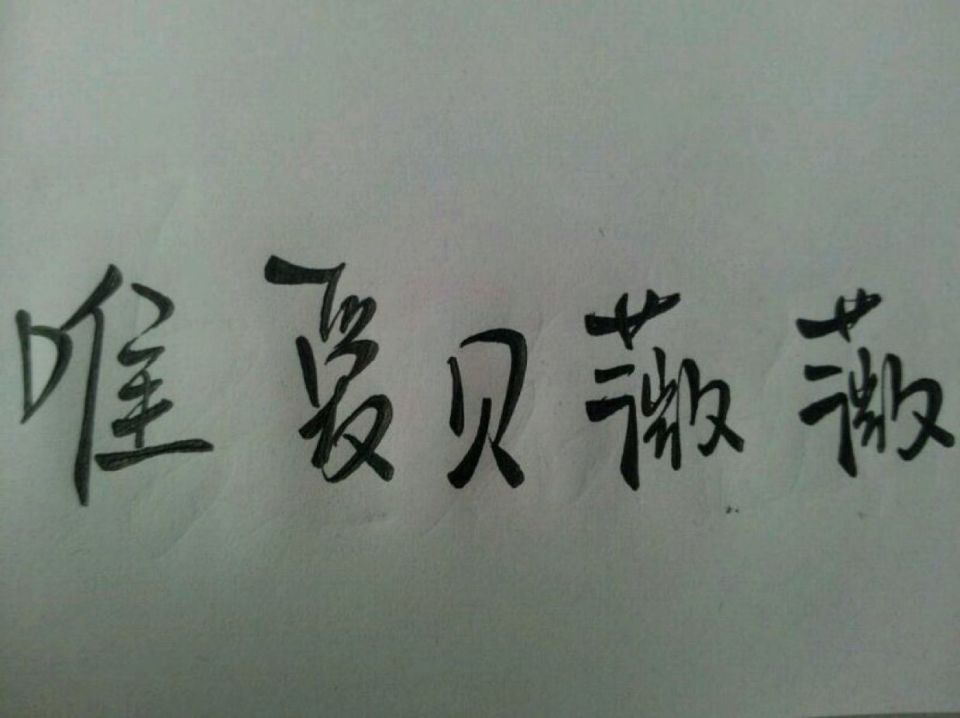 唯爱贝薇薇